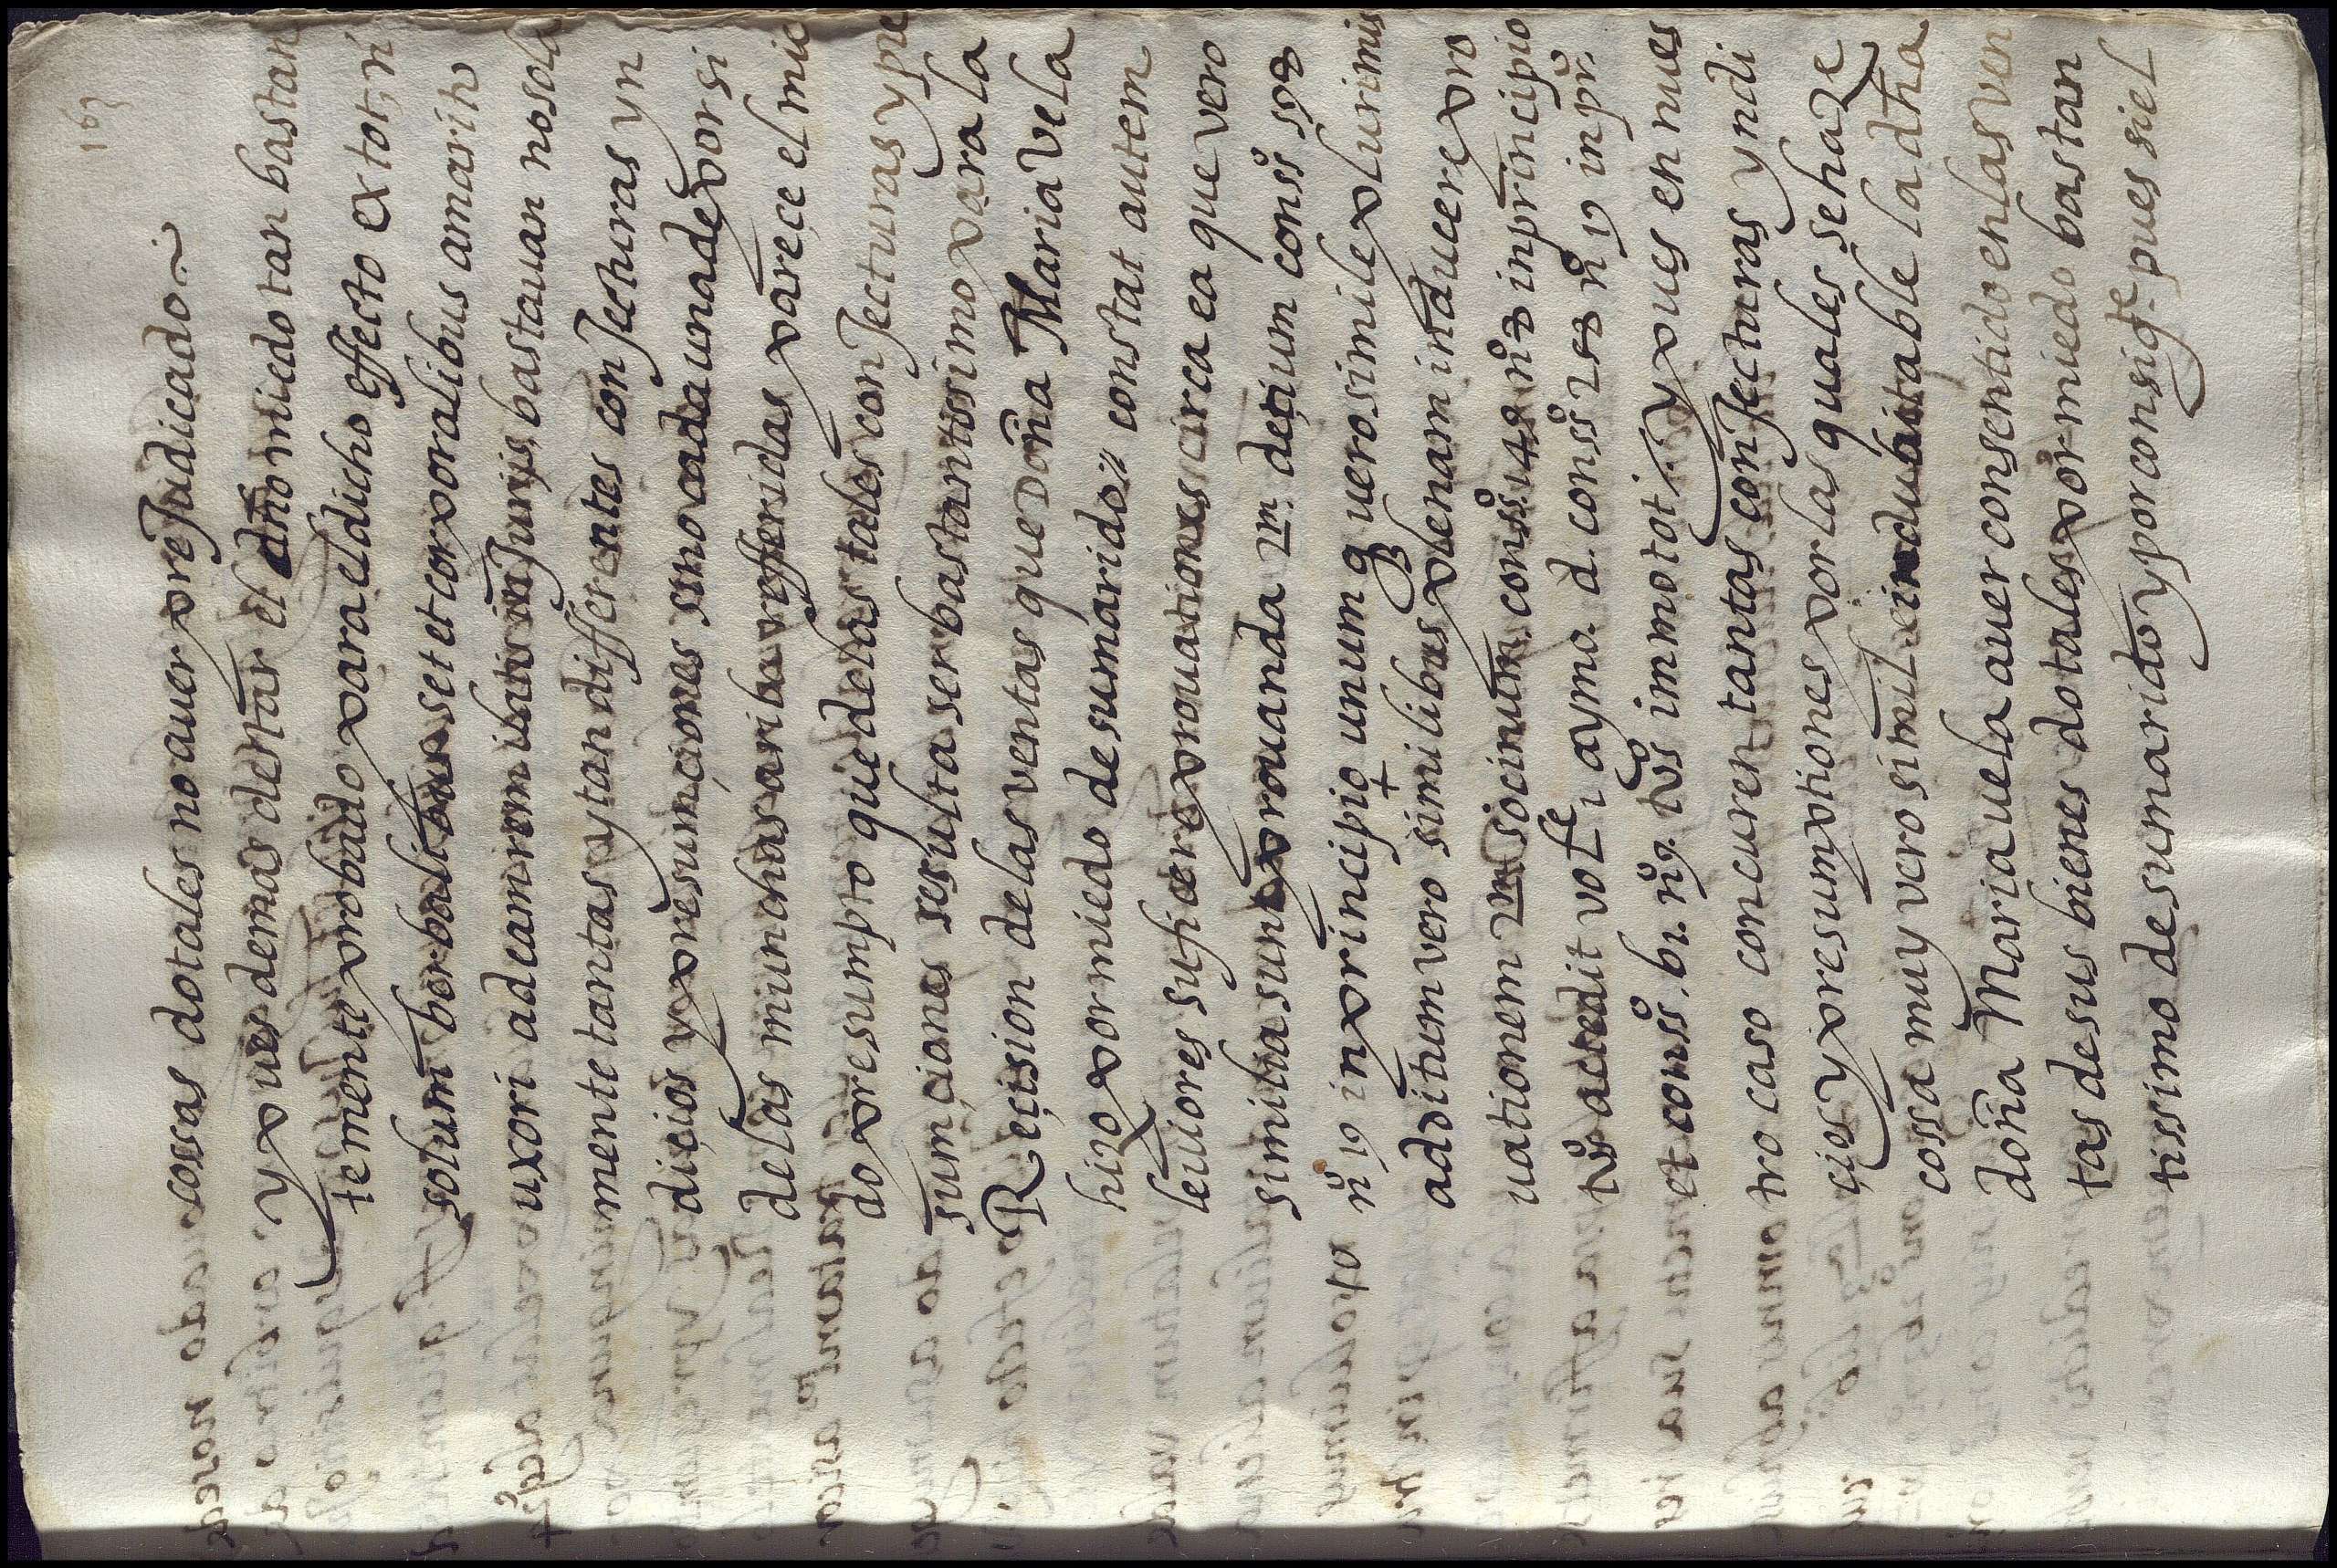 163
cossas dotales no auer preJudicado
y pues demas dentar el dho miedo tan bastan
temente probado para el dicho effecto extot, n
solum berbalibus set et corporalibus a marito
uxori ad eam rem ilatis inJurijs, bastauan no sola
mente tantas y tan differentes conJecturas yn
diçios y presumçiones sino cada una de por si
de las munchas ariba refferidas pareçe el mie
do presumpto que de las tales conJecturas y pre
sumçiones resulta ser bastantissimo para la
Reçision de las ventas que Doña Maria Vela
hizo por miedo de su marido // constat autem
leuiores suficere prouationes circa ea que vero
similia sunt prouanda deçium conss 598
nº 19 in principio unum q uerosimile plurimis
additum vero similibus plenam inducere pro
uationem socinum conss. 148 nº 2 in principio
accedit vol 1 aymo. d. conss 258 nº 19 in pr.
et conss. 61. nº 9. immo tot. y pues en nues
tro caso concurren tantas conJecturas yndi
çies y presumptiones por las quales se haze
cossa muy vero simil e indubitable la dha
doña Maria uela auer consentido en las ven
tas de sus bienes dotales por miedo bastan
tissimo de su marido y por consigte. pues si el